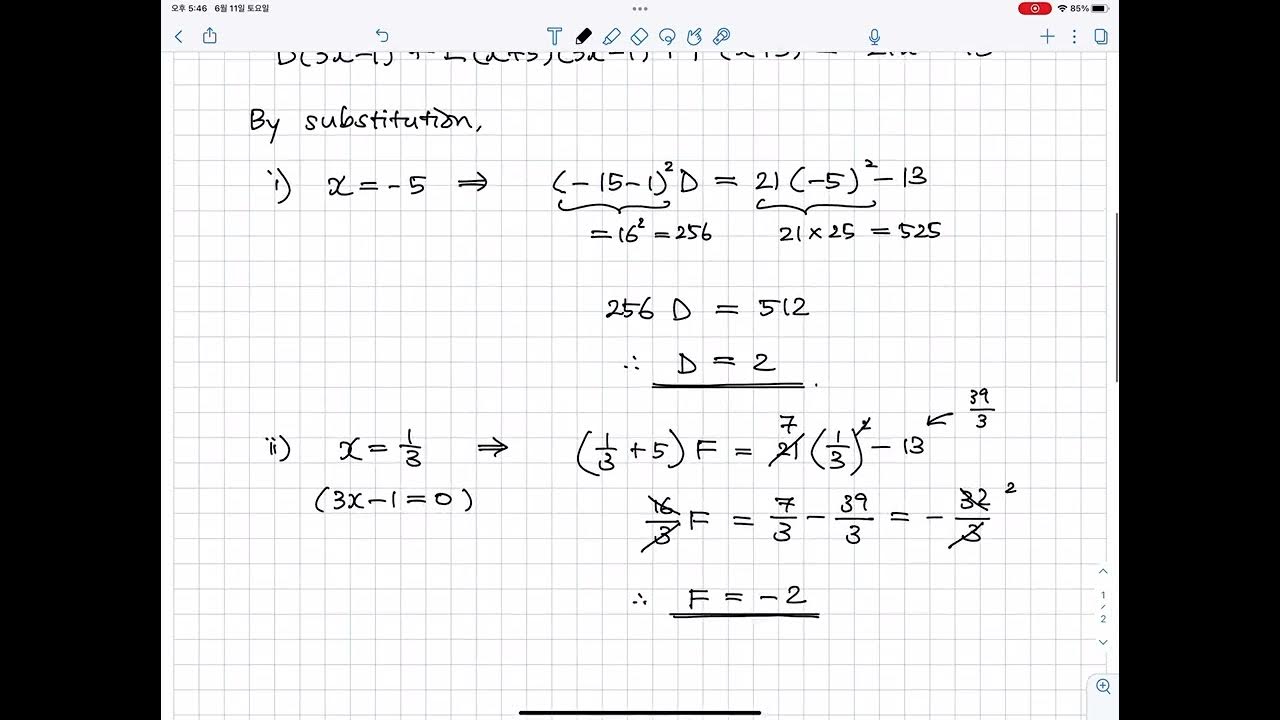 오후 5:46 6월 11일 토요일 85%
By substitution,
i) x = -5 ⇒ (-15-1)² D = 21(-5)² - 13
= 16² = 256 21 × 25 = 525
256 D = 512
∴ D = 2
39/3
7
ii) x = 1/3 ⇒ (1/3 + 5) F = 21 (1/3)² - 13
(3x-1=0) 16/3 F = 7/3 - 39/3 = - 32/3 2
∴ F = -2
1/2